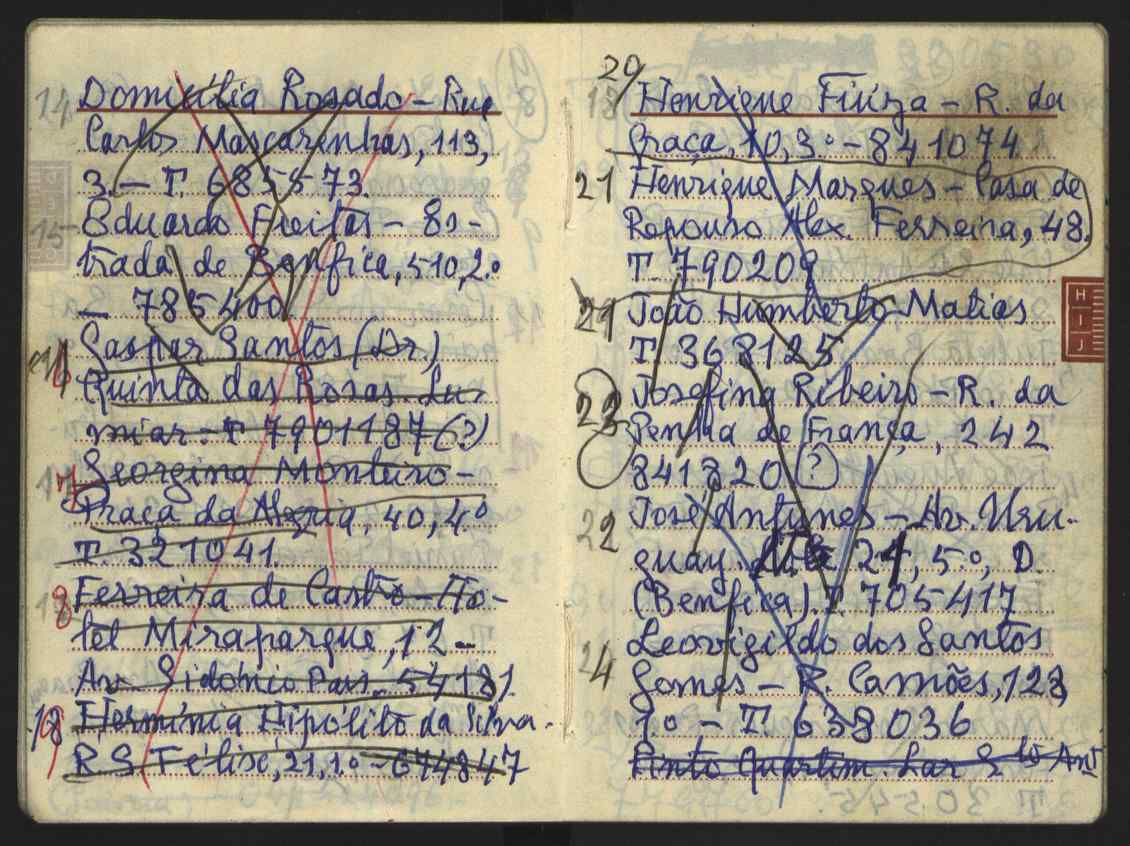 14 Domicilia Rosado – Rua
Carlos Mascarenhas, 113,
3. – T 685573
15 Eduardo Freitas – Es-
trada de Benfica, 510, 2º
– 785400
Gaspar Santos (Dr.)
Quinta das Rosas Lu-
miar: T 7901187 (?)
Georgina Monteiro –
Praça da Alegria, 40, 4º
T. 321041
8 Ferreira de Castro – Ho-
tel Miraparque, 12 –
Av. Sidónio Pais. 54181
18 Hermínia Hipólito da Silva.
R S. Félix, 21, 1º – 674847
20
Henrique Fiúza – R. da
Praça, 10, 3º – 841074
21 Henrique Marques – Casa de
Repouso Alex. Ferreira, 48.
T. 790209
João Humberto Matias
T. 368125
23 Josefina Ribeiro – R. da
Penha de França, 242
841820 (?)
22 José Antunes – Av. Uru-
guay. 21, 5º, D.
(Benfica). T. 705417
24 Leovigildo dos Santos
Gomes – R. Camões, 128
7º – T. 638036
Pinto Quartim. Lar S. to Antº
H I J